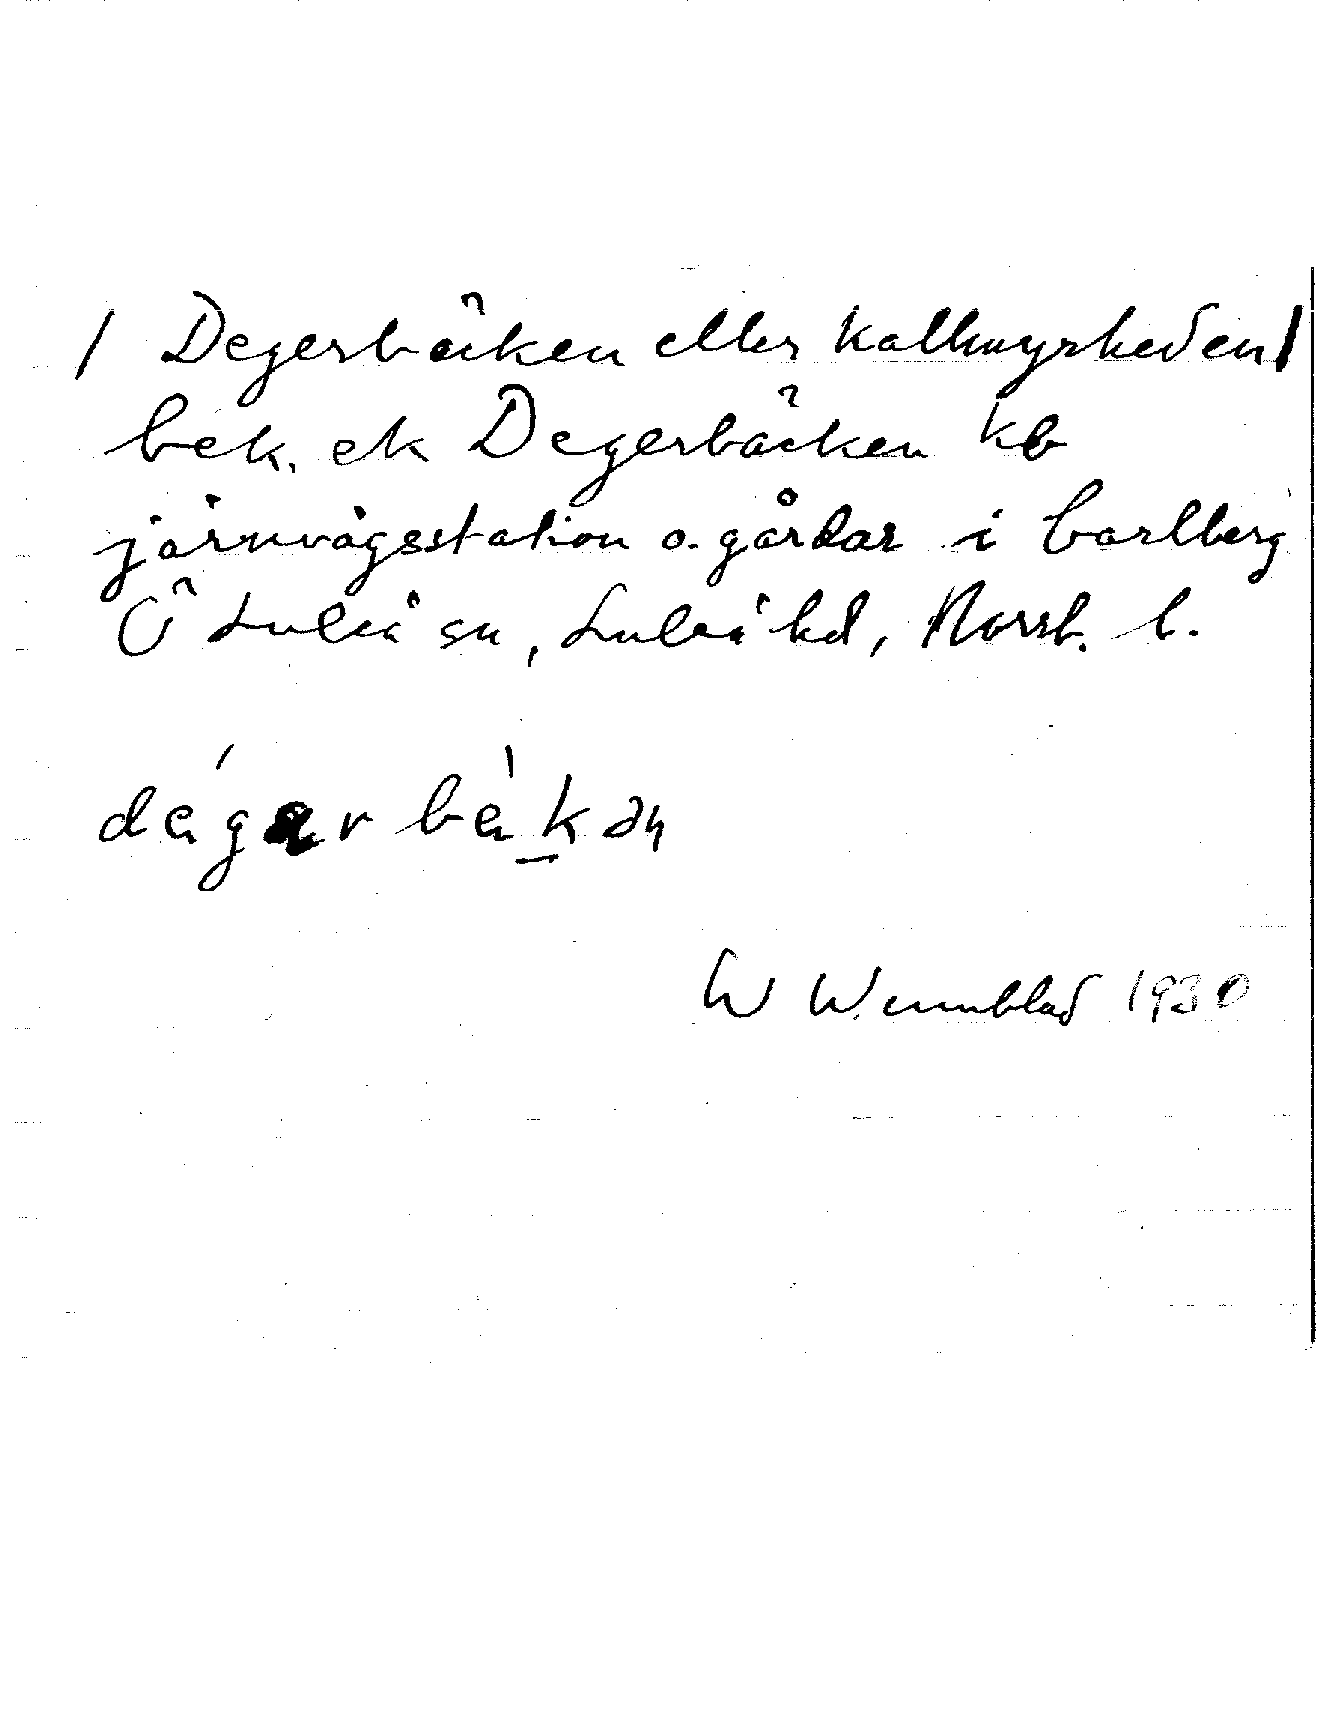 / Degerbäcken eller Kallmyrheden /
bek. ek Degerbäcken kb
järnvägsstation o. gårdar i Carlberg
Ö Luleå sn, Luleå hd, Norrb. l.
degar bekən
W Wennblad 1930